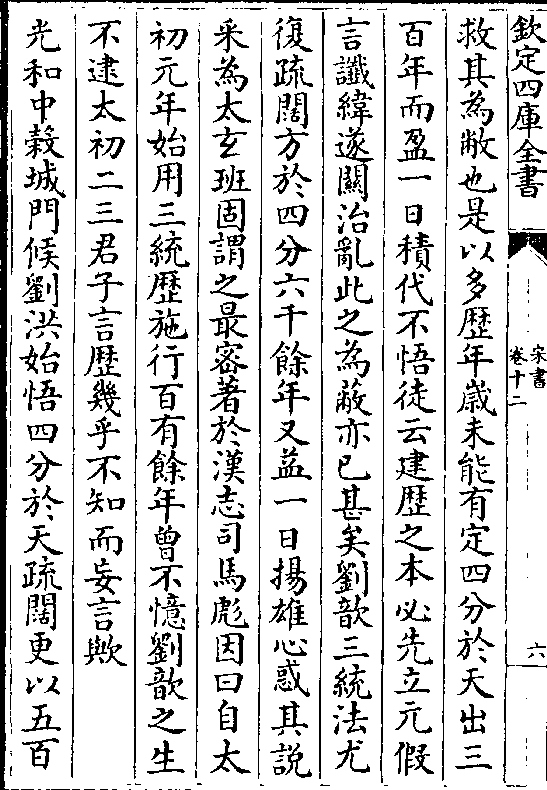 欽定四庫全書
宋書
卷十二
六
救其為敝也是以多歷年歲未能有定四分於天出三
百年而盈一日積代不悟徒云建歷之本必先立元假
言讖緯遂關治亂此之為蔽亦已甚矣劉歆三統法尤
復疏闊方於四分六千餘年又益一日揚雄心惑其說
采為太玄班固謂之最密著於漢志司馬彪因曰自太
初元年始用三統歷施行百有餘年曾不憶劉歆之生
不逮太初二三君子言歷幾乎不知而妄言歟
光和中穀城門候劉洪始悟四分於天疏闊更以五百